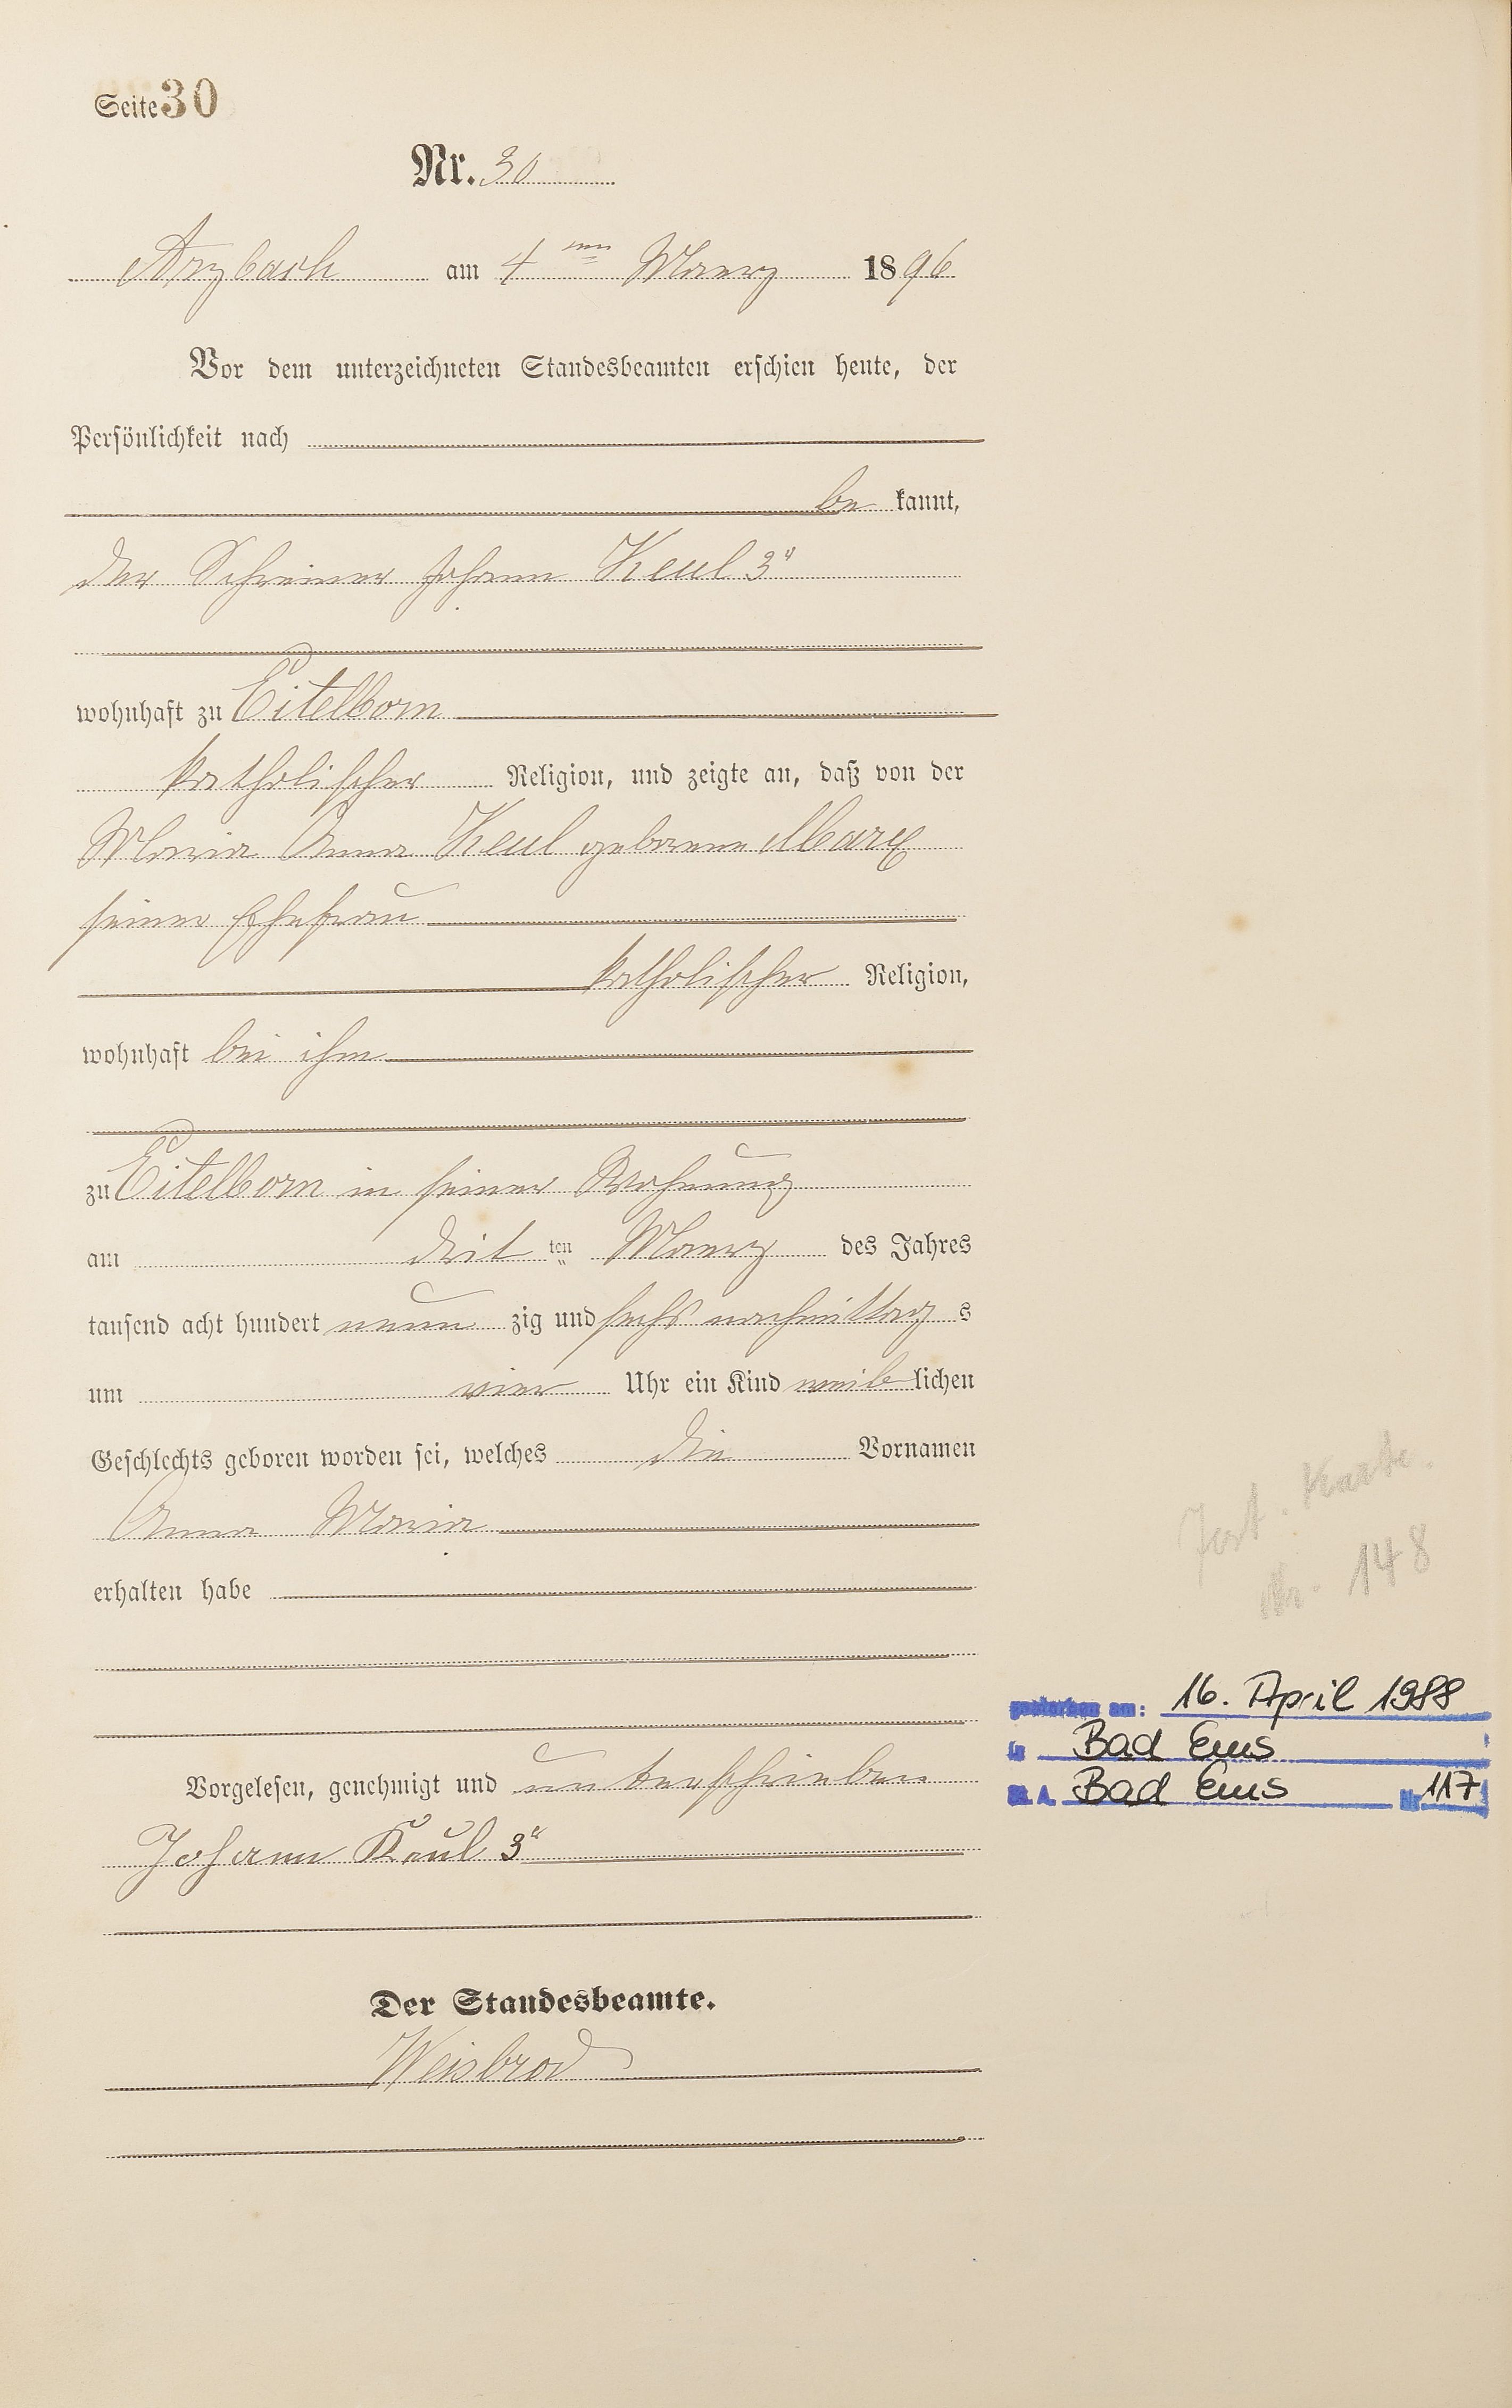 Seite 30
Nr. 30
Arzbach am 4ten Maerz 1896
Vor dem unterzeichneten Standesbeamten erschien heute, der
Persönlichkeit nach
be kannt,
der Schreiner Johann Keul 3r
wohnhaft zu Eitelborn
katholischer Religion, und zeigte an, daß von der
Maria Anna Keul geborene Marx
seiner Ehefrau
katholischer Religion,
wohnhaft bei ihm
zu Eitelborn in seiner Wohnung
am drit ten Maerz des Jahres
tausend acht hundert neun zig und sechs nachmittag s
um vier Uhr ein Kind weib lichen
Geschlechts geboren worden sei, welches die Vornamen
Anna Maria
erhalten habe
Vorgelesen, genehmigt und unterschrieben
Johann Keul 3r
Der Standesbeamte.
Weisbrod
Karte
Nr. 148
gestorben am: 16. April 1988
in Bad Ems
St. A. Bad Ems Nr. 117